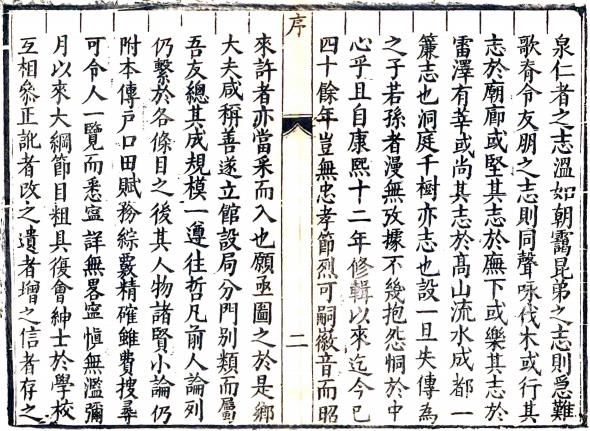 泉仁者之志溫如朝靄昆弟之志則急難
歌脊令友朋之志則同聲咏伐木或行其
志於廟廊或堅其志於廡下或樂其志於
雷澤有莘或尚其志於高山流水成都一
簾志也洞庭千樹亦志也設一旦失傳為
之子若孫者漫無攷據不幾抱怨恫於中
心乎且自康熙十二年修輯以來迄今已
四十餘年豈無忠孝節烈可嗣徽音而昭
序
二
來許者亦當采而入也願亟圖之於是鄉
大夫咸稱善遂立館設局分門别類而屬
吾友總其成規模一遵往哲凡前人論列
仍繫於各條目之後其人物諸賢小論仍
附本傳戶口田賦務綜覈精確雖費搜尋
可令人一覽而悉寧詳無畧寧慎無濫彌
月以來大綱節目粗具復會紳士於學校
互相叅正訛者改之遺者增之信者存之